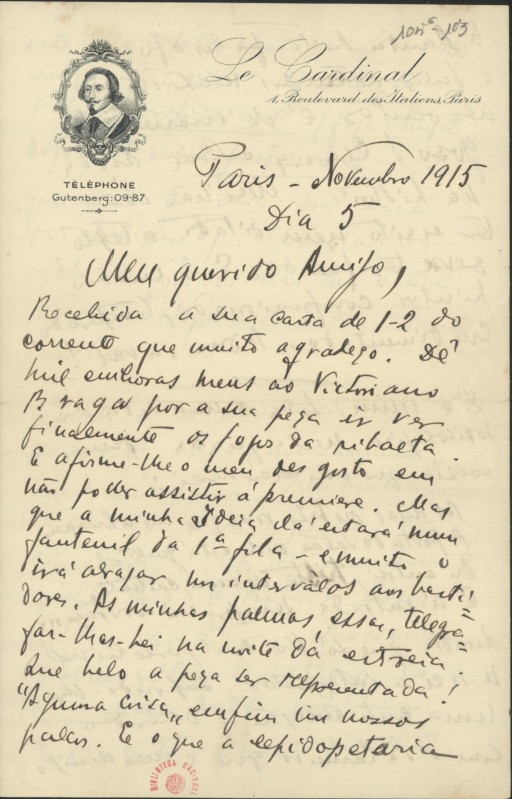 105⁶-103
Le Cardinal
1, Boulevard des Italiens, Paris
TÉLÉPHONE
Gutenberg: 09-87
Paris - Novembro 1915
Dia 5
Meu querido Amigo,
Recebida a sua carta de 1-2 do
corrente que muito agradeço. Dê
mil emboras meus ao Victoriano
Braga por a sua peça ir ver
finalmente os fogos da ribalta.
E afirme-lhe o meu desgosto em
não poder assistir á première. Mas
que a minha Ideia lá estará num
fauteuil da 1ª fila - e muito o
irá abraçar nos intervalos aos basti-
dores. As minhas palmas essas, telegra-
far-lhas-hei na noite da estreia.
Que belo a peça ser representada!
"Alguma coisa" enfim nos nossos
palcos. E o que a lepidopetaria
BIBLIOTECA NACIONAL